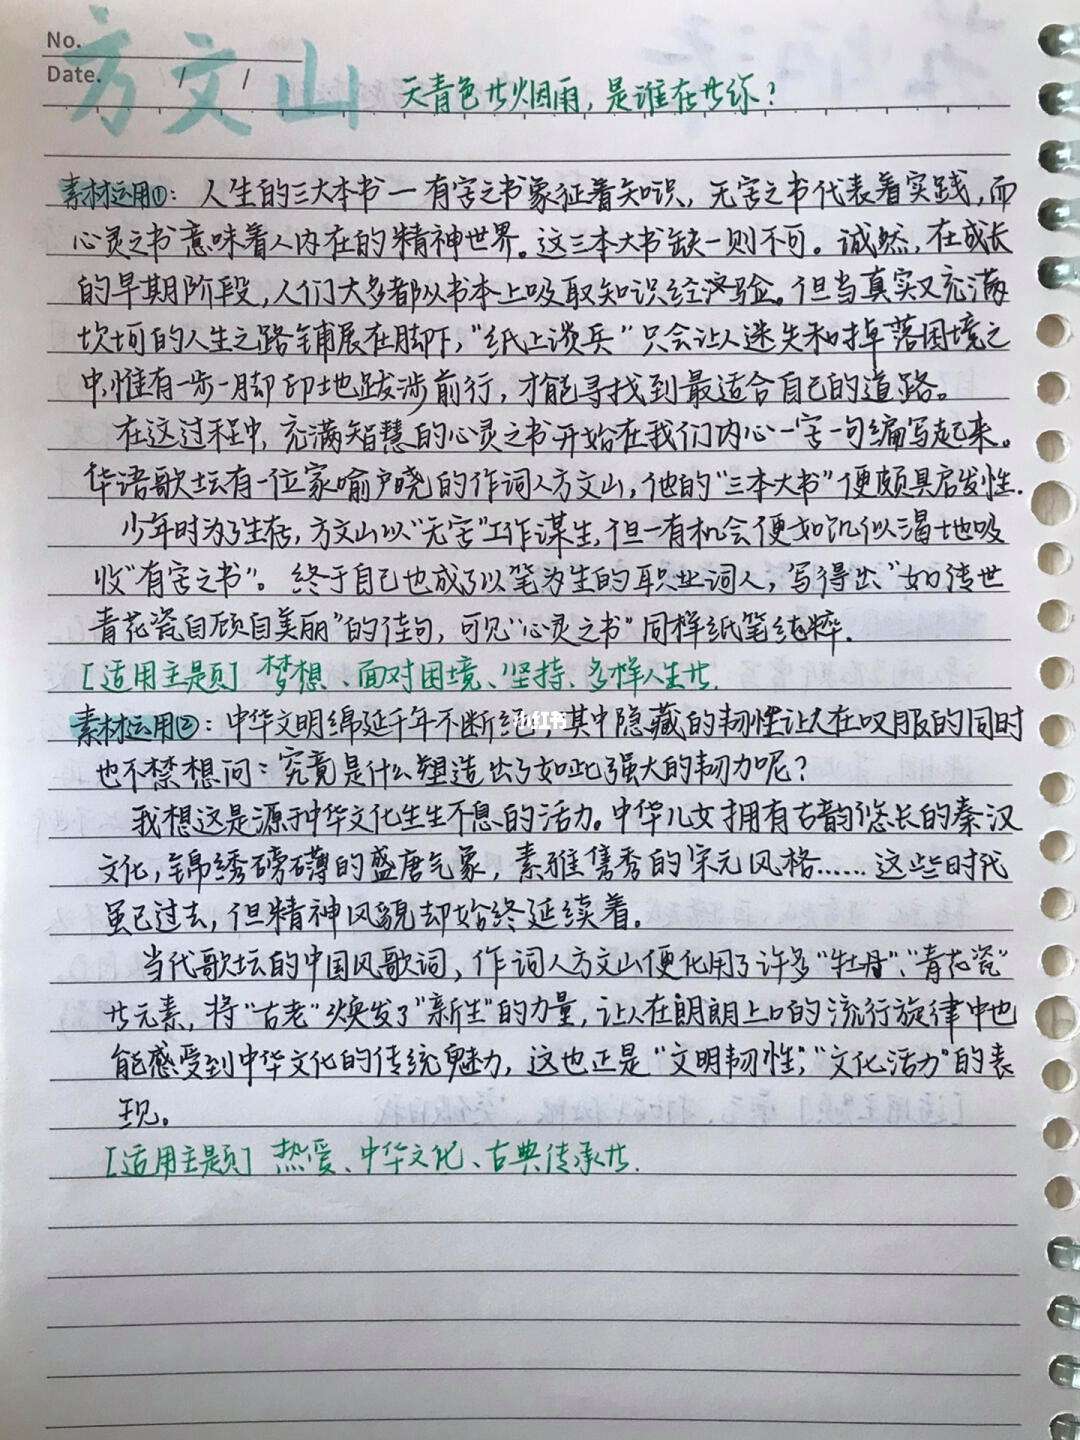 No.
Date. / /
方文山
天青色廾烟雨，是谁在廾你？
素材运用①：人生的三大本书一有字之书象征着知识，无字之书代表着实践，而
心灵之书意味着人内在的精神世界。这三本大书缺一则不可。诚然，在成长
的早期阶段，人们大多都从书本上吸取知识经济验。但当真实又充满
坎坷的人生之路铺展在脚下，“纸上谈兵”只会让人迷失和掉落困境之
中，惟有一步一脚印地跋涉前行，才能寻找到最适合自己的道路。
在这过程中，充满智慧的心灵之书开始在我们内心一字一句编写起来。
华语歌坛有一位家喻户晓的作词人方文山，他的“三本大书”便颇具启发性.
少年时为了生存，方文山以“无字”工作谋生，但一有机会便如饥似渴地吸
收“有字之书”。终于自己也成了以笔为生的职业词人，写得出“如传世
青花瓷自顾自美丽”的佳句，可见“心灵之书”同样纸笔纯粹.
[适用主题] 梦想、面对困境、坚持、多样人生廾.
素材运用②：中华文明绵延千年不断绝，其中隐藏的韧性让人在叹服的同时
小红书
也不禁想问：究竟是什么塑造出了如此强大的韧力呢？
我想这是源于中华文化生生不息的活力。中华儿女拥有古韵悠长的秦汉
文化，锦绣磅礴的盛唐气象，素雅隽秀的宋元风格……这些时代
虽已过去，但精神风貌却始终延续着。
当代歌坛的中国风歌词，作词人方文山便化用了许多“牡丹”、“青花瓷”
廾元素，将“古老”焕发了“新生”的力量，让人在朗朗上口的流行旋律中也
能感受到中华文化的传统魅力，这也正是“文明韧性”，“文化活力”的表
现。
[适用主题] 热爱、中华文化、古典传承廾.